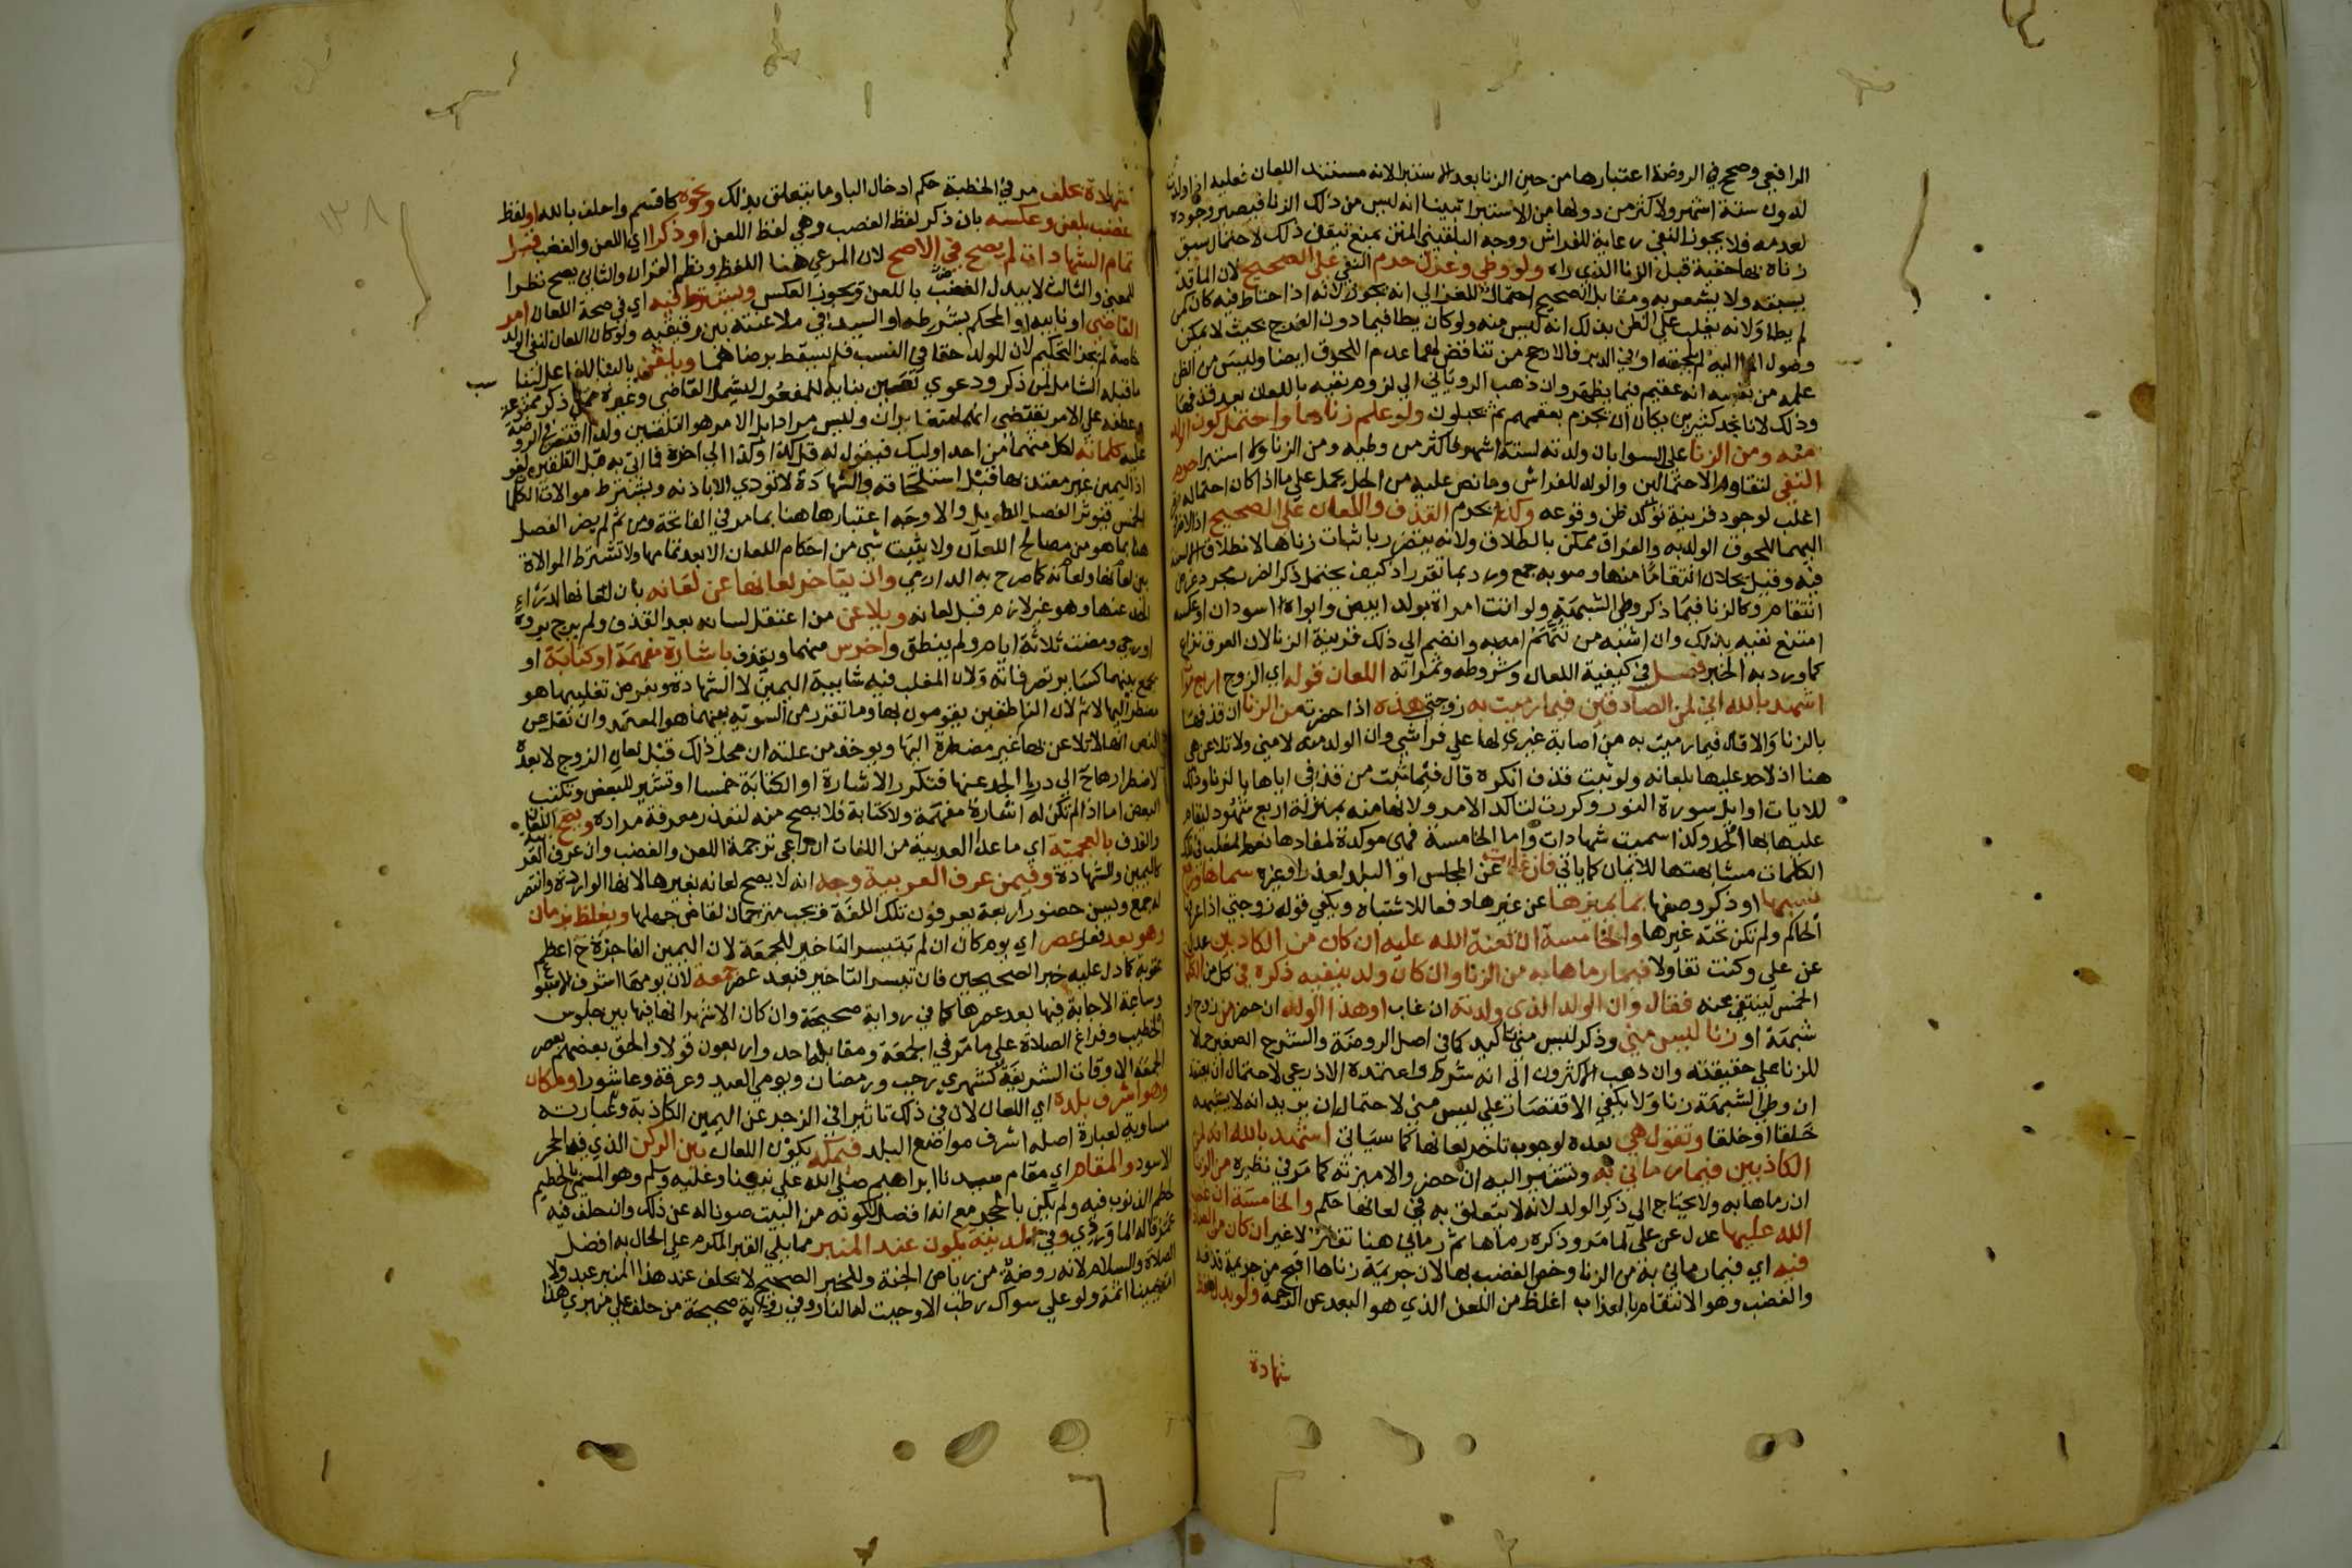 الرافعي وصحح في الروضة اعتبارها من حين الزنا بعد الاستبرا لانه مستند اللعان فعليه اذا ولدت
لدون ستة اشهر ولاكثر من دونها من الاستبرا تبينا انه ليس من ذلك الزنا فيصير وجوده
كعدمه فلا يجوز النفي رعاية للفراش ووجه البلقيني المتن بمنع تيقن ذلك لاحتمال سبق
زناه بها خفية قبل الزنا الذي راه ولو وطي وعزل حرم النفي علي الصحيح لان الما قد
يسبقه ولا يشعر به ومقابل الصحيح احتمال للغزالي انه يجوز لانه اذا احتاط فيه كان كمن
لم يطا ولانه يغلب علي الظن بذلك انه ليس منه ولو كان يطا فيما دون الفرج بحيث لا يمكن
وصول الما اليه لم يلحقه او في الدبر فالارجح من تناقض لهما عدم اللحوق ايضا وليس من الظن
علمه من نفسه انه عقيم فيما يظهر وان ذهب الروياني الي لزوم نفيه باللعان بعد قذفها
وذلك لانا نجد كثيرين يكاد ان يجزم بعقمهم ثم يحبلون ولو علم زناها واحتمل كون الولد
منه ومن الزنا علي السوا بان ولدته لستة اشهر فاكثر من وطيه ومن الزنا ولا استبرا حرم
النفي لتقاوم الاحتمالين والولد للفراش وما نص عليه من الحل يحمل علي ما اذا كان احتماله
اغلب لوجود قرينة تؤكد ظن وقوعه وكذا يحرم القذف واللعان علي الصحيح اذ لا ضرورة
اليهما للحوق الولد به والفراق ممكن بالطلاق ولانه يتضرر باثبات زناها لانطلاق الالسنة
فيه وقيل يحلان انتقاما منها وصوبه جمع ورد بما تقرر اذ كيف يحتمل ذكر الضرر لمجرد غرض
انتقام وكالزنا فيما ذكر وطي الشبهة ولو اتت امراة بولد ابيض وابواه اسودان او عكسه
امتنع نفيه بذلك وان اشبه من تتهم امه به وانضم الي ذلك قرينة الزنا لان العرق نزاع
كما ورد به الخبر فصل في كيفية اللعان وشروطه وثمراته اللعان قوله اي الزوج اربع مرات
اشهد بالله اني لمن الصادقين فيما رميت به زوجتي هذه اذا حضرت من الزنا ان قذفها
بالزنا والا قال فيما رميت به من اصابة غيري لها علي فراشي وان الولد منه لا مني ولا تلاعن هي
هنا اذ لا حد عليها بلعانه ولو ثبت قذف انكره قال فيما ثبت من قذفي اياها بالزنا وذلك
للايات اوايل سورة النور وكررت لتاكد الامر ولانها منه بمنزلة اربع شهود ليقام
عليها بها الحد ولذا سميت شهادات واما الخامسة فهي موكدة لمفادها نعم المغلب في تلك
الكلمات مشابهتها للايمان كما ياتي فان غابت عن المجلس او البلد لعذر او غيره سماها ورفع
نسبها او ذكر وصفها بما يميزها عن غيرها دفعا للاشتباه ويكفي قوله زوجتي اذا عرفها
الحاكم ولم تكن تحته غيرها والخامسة ان لعنة الله عليه ان كان من الكاذبين عدل
عن علي وكنت تفاولا فيما رماها به من الزنا وان كان ولد ينفيه ذكره في كل من الكلمات
الخمس لينتفي عنه فقال وان الولد الذي ولدته ان غاب او هذا الولد ان حضر من زوج او
شبهة او زنا ليس مني وذكر ليس مني تاكيد كما في اصل الروضة والشرح الصغير حملا
للزنا علي حقيقته وان ذهب الاكثرون الي انه شرط واعتمده الاذرعي لاحتمال ان يعتقد
ان وطي الشبهة زنا ولا يكفي الاقتصار علي ليس مني لاحتمال ان يريد انه لا يشبهه
خلقا او خلقا وتقول هي بعده لوجوب تاخر لعانها كما سياتي اشهد بالله انه لمن
الكاذبين فيما رماني به وتشير اليه ان حضر والا ميزته كما مر في نظيره من الزنا
ان رماها به ولا يحتاج الي ذكر الولد لانه لا يتعلق به في لعانها حكم والخامسة ان غضب
الله عليها عدل عن علي لما مر وذكره رماها ثم رماني هنا تفنن لا غير ان كان من الصادقين
فيه اي فيما رماني به من الزنا وخص الغضب بها لان جريمة زناها اقبح من جريمة قذفه
والغضب وهو الانتقام بالعذاب اغلظ من اللعن الذي هو البعد عن الرحمة ولو بدل لفظ
شهادة
شهادة بحلف مر في الخطبة حكم ادخال البا وما يتعلق بذلك ونحوه كاقسم واحلف بالله او لفظ
غضب بلعن وعكسه بان ذكر لفظ الغضب وهي لفظ اللعن او ذكرا اي اللعن والغضب قبل
تمام الشهادات لم يصح في الاصح لان المرعي هنا اللفظ ونظم القران والثاني يصح نظرا
للمعني والثالث لا يبدل الغضب باللعن ويجوز العكس ويشترط فيه اي في صحة اللعان امر
القاضي او نايبه او المحكم بشرطه او السيد في ملاعنته بين رقيقيه ولو كان اللعان لنفي الولد
خاصة لم يجز التحكيم لان للولد حقا في النسب فلم يسقط برضاهما ويلقن بالبنا للفاعل لبنا
ما قبله الشامل لمن ذكر ودعوي تعين بنايه للمفعول ليشمل القاضي وغيره ممن ذكر ممنوعة
وعطفه علي الامر يقتضي انهما متغايران وليس مرادا بل الامر هو التلقين ولذا اقتصر في الروضة
عليه كلماته لكل منهما من احد اوليك فيقول له قل كذا وكذا الي اخره فما اتي به قبل التلقين لغو
اذ اليمين غير معتد بها قبل استحلافه والشهادة لا تؤدي الا باذنه ويشترط موالاة الكلمات
الخمس فيؤثر الفصل الطويل والاوجه اعتبارها هنا بما مر في الفاتحة ومن ثم لم يضر الفصل
هنا بما هو من مصالح اللعان ولا يثبت شي من احكام اللعان الا بعد تمامها ولا تشترط الموالاة
بين لعانها ولعانه كما صرح به الدارمي وان يتاخر لعانها عن لعانه بان لعانها لدرء
الحد عنها وهو غير لازم قبل لعانه ويلاعن من اعتقل لسانه بعد القذف ولم يرج بروه
او رجي ومضت ثلاثة ايام ولم ينطق واخرس منهما ويقذف باشارة مفهمة او كتابة او
يجمع بينهما كساير تصرفاته ولان المغلب فيه شايبة اليمين لا الشهادة وبفرض تغليبها هو
مضطر اليها لا ثم لان الناطقين يقومون بها وما تقرر من التسوية بينهما هو المعتمد وان نقل عن
النص انها لا تلاعن بها غير مضطرة اليها ويوخذ من علته ان محل ذلك قبل لعان الزوج لا بعده
لاضطرارها ح الي درء الحد عنها فتكرر الاشارة او الكتابة خمسا او تشير للبعض وتكتب
البعض اما اذا لم تكن له اشارة مفهمة ولا كتابة فلا يصح منه لتعذر معرفة مراده ويصح اللعان
والقذف بالعجمية اي ما عدا العربية من اللغات ان راعي ترجمة اللعن والغضب وان عرف العربية
كاليمين والشهادة وفيمن عرف العربية وجه انه لا يصح لعانه بغيرها لانها الواردة وانتصر
له جمع ويسن حضور اربعة يعرفون تلك اللغة ويجب مترجمان لقاض جهلها ويغلظ بزمان
وهو بعد فعل عصر اي يوم كان ان لم يتيسر التاخير للجمعة لان اليمين الفاجرة ح اعظم
عقوبة كما دل عليه خبر الصحيحين فان تيسر التاخير فبعد عصر جمعة لان يومها اشرف الاسبوع
وساعة الاجابة فيها بعد عصرها كما في رواية صحيحة وان كان الاشهر انها فيما بين جلوس
الخطيب وفراغ الصلاة علي ما مر في الجمعة ومقابله احد واربعون قولا والحق بعضهم بعصر
الجمعة الاوقات الشريفة كشهري رجب ورمضان ويومي العيد وعرفة وعاشورا ومكان
وهو اشرف بلده اي اللعان لان في ذلك تاثيرا في الزجر عن اليمين الكاذبة وعبارته
مساوية لعبارة اصله اشرف مواضع البلد فبمكة يكون اللعان بين الركن الذي فيه الحجر
الاسود والمقام اي مقام سيدنا ابراهيم صلي الله علي نبينا وعليه وسلم وهو المسمي بالحطيم
لحطم الذنوب فيه ولم يكن بالحجر مع انه افضل لكونه من البيت صونا له عن ذلك وان حلف فيه
عمر قاله الماوردي وفي المدينة يكون عند المنبر مما يلي القبر المكرم علي الحال به افضل
الصلاة والسلام لانه روضة من رياض الجنة وللخبر الصحيح لا يحلف عند هذا المنبر عبد ولا
امة يمينا اثمة ولو علي سواك رطب الا وجبت له النار وفي رواية صحيحة من حلف علي منبري هذا